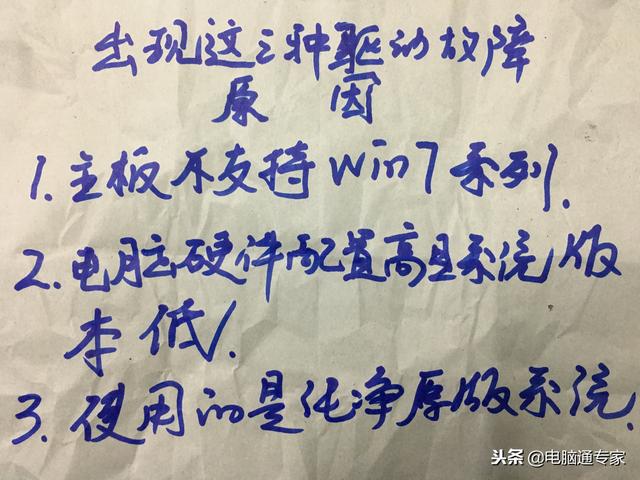 出现这三种驱动故障
原因
1.主板不支持Win7系列.
2.电脑硬件配置高且系统版
本低.
3.使用的是纯净原版系统.
头条@电脑通专家